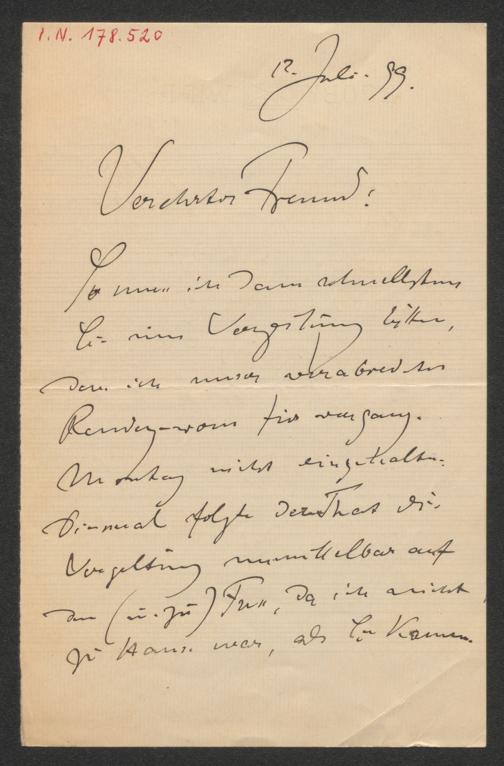 I.N. 178.520
12. Juli. 99.
Verehrter Freund!
So muss ich denn schnellstens
Sie um Vergebung bitten,
dass ich unser verabredetes
Rendez-vous für vergang.
Montag nicht eingehalten.
Diesmal folgte der That die
Vergeltung unmittelbar auf
den (u. zu) Fuss, da ich nicht
zu Hause war, als Sie kamen.